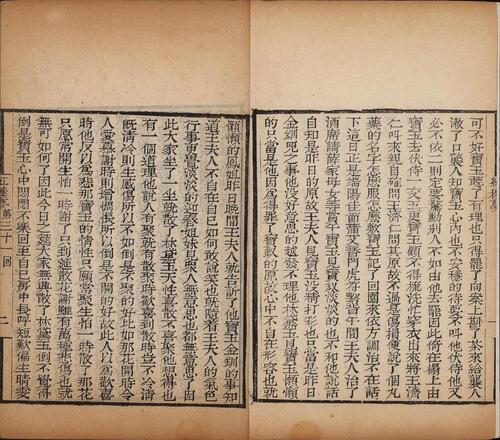 可不好寶玉聽了有理也只得罷了向案上斟了茶來給襲人
漱了口襲人知寶玉心內也不安穩的待要不叫他伏侍他又
必不依二則定要驚動別人不如由他去罷因此倚在榻上由
寶玉去伏侍一交五更寶玉顧不得梳洗忙穿衣出來將王濟
仁叫來親自確問王濟仁問其原故不過是傷損便說了個丸
藥的名字怎麼服怎麼敷寶玉記了回園來依方調治不在話
下這日正是端陽佳節蒲艾簪門虎符繫臂午間王夫人治了
酒席請薛家母女等過節寶玉見寶釵淡淡的也不和他說話
自知是昨日的原故王夫人見寶玉沒精打彩也只當是昨日
金釧兒之事他沒好意思的越發不理他林黛玉見寶玉懶懶
的只當是他因爲得罪了寶釵的原故心中不自在形容也就
懶懶的鳳姐昨日晚間王夫人就告訴了他寶玉金釧的事知
道王夫人不自在自己如何敢說笑也就隨着王夫人的氣色
行事更覺淡淡的迎春姐妹見衆人無意思也都無意思了因
此大家坐了一坐就散了林黛玉天性喜散不喜聚他想得也
有一個道理他說人有聚就有散聚時歡喜到散時豈不冷清
既清冷則生感傷所以不如倒是不聚的好比如那花開時令
人愛慕謝時則增惆悵所以倒是不開的好故此人以爲歡喜
時他反以爲悲那寶玉的情性只願常聚生怕一時散了那花
只願常開生怕一時謝了只到筵散花謝雖有萬種悲傷也就
無可如何了因此今日之筵大家無興散了林黛玉倒不覺得
倒是寶玉心中悶悶不樂回至自己房中長吁短歎偏生晴雯
紅樓夢 第三十一回 二